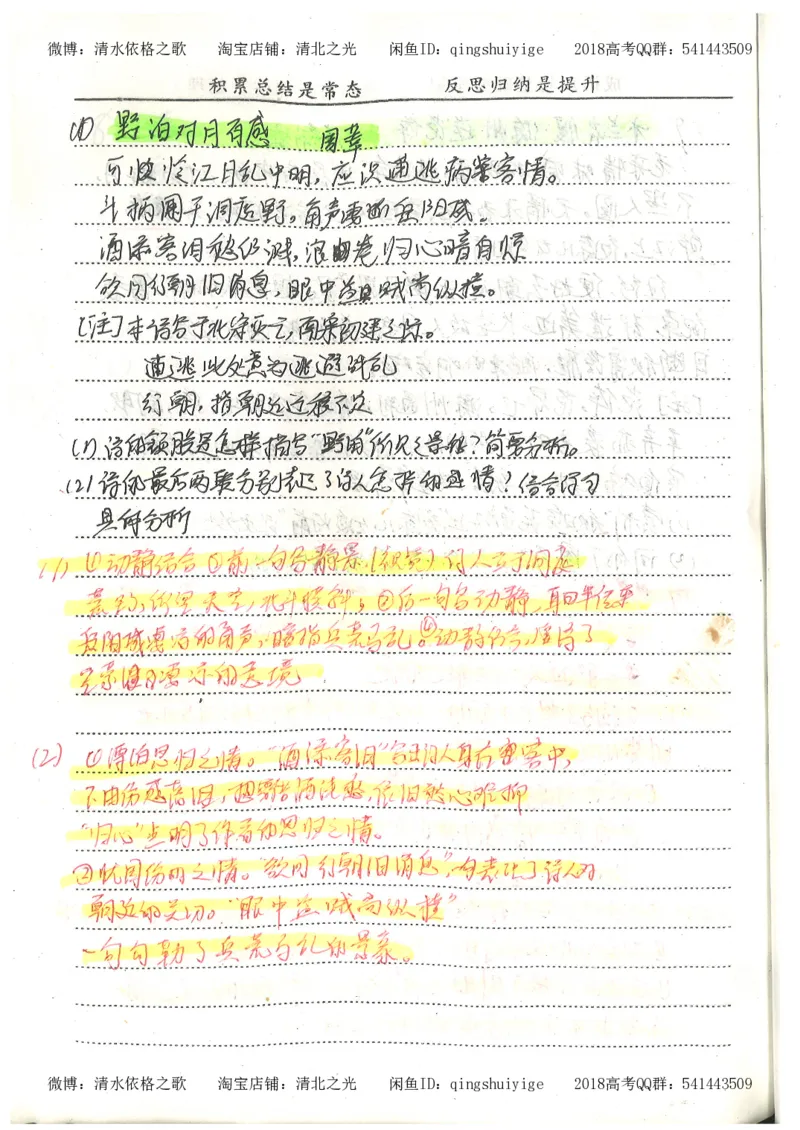 微博：清水依格之歌 淘宝店铺：清北之光 闲鱼ID：qingshuiyige 2018高考QQ群：541443509
积累总结是常态 反思归纳是提升
野泊对月有感 周莘
可怜江月乱中明，应识逋逃病客情。
斗柄阑干洞庭野，角声凄断岳阳城。
酒添客泪愁仍溅，浪卷归心暗自惊
欲问行朝旧消息，眼中盗贼尚纵横。
[注]本诗写于北宋灭亡，南宋初建之际。
逋逃 此处意为逃避战乱
行朝，指朝廷迁移不定
(1) 诗的额联是怎样描写“野泊”所见之景的？简要分析。
(2) 诗的最后两联分别表达了诗人怎样的感情？结合诗句
具体分析
(1) ①动静结合 ②前一句写静景，(视觉) 诗人立于洞庭
荒野，所望天空，北斗横斜；③后一句写动静，耳畔传来
岳阳城凄凉的角声，暗指兵荒马乱。④动静结合，渲染了
的意境
(2) ①漂泊思归之情。“酒添客泪”写出诗人身在客中，
不由伤感落泪，想要借酒浇愁，依旧愁心难抑
“归心”点明了作者的思归之情。
②忧国伤时之情。“欲问行朝旧消息”，句表达了诗人对
朝廷的关切。“眼中盗贼尚纵横”
一句勾勒了兵荒马乱的景象。
微博：清水依格之歌 淘宝店铺：清北之光 闲鱼ID：qingshuiyige 2018高考QQ群：541443509